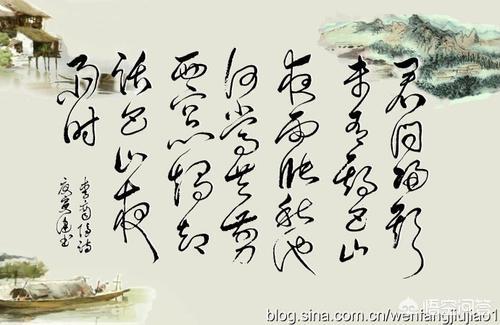 君问归期
未有期巴山
夜雨涨秋池
何当共剪
西窗烛却
话巴山夜
雨时
李商隐诗
书
悟空问答
blog.sina.com.cn/wenfangjiujiao1